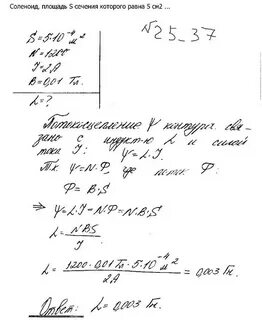 Соленоид, площадь S сечения которого равна S см2 ...
№25-37
S = 5·10⁻⁴ м²
N = 1200
I = 2A
B = 0,01 Тл.
L = ?
Потокосцепление Ψ контура свя-
зано с индукт-ю L и силой
тока I: Ψ = L·I.
Т.к. Ψ = N·Ф, где поток Ф:
Ф = B·S
⇒ Ψ = L·I = N·Ф = N·B·S
L = NBS / I
L = 1200·0,01 Тл·5·10⁻⁴ м² / 2A = 0,003 Гн.
Ответ: L = 0,003 Гн.